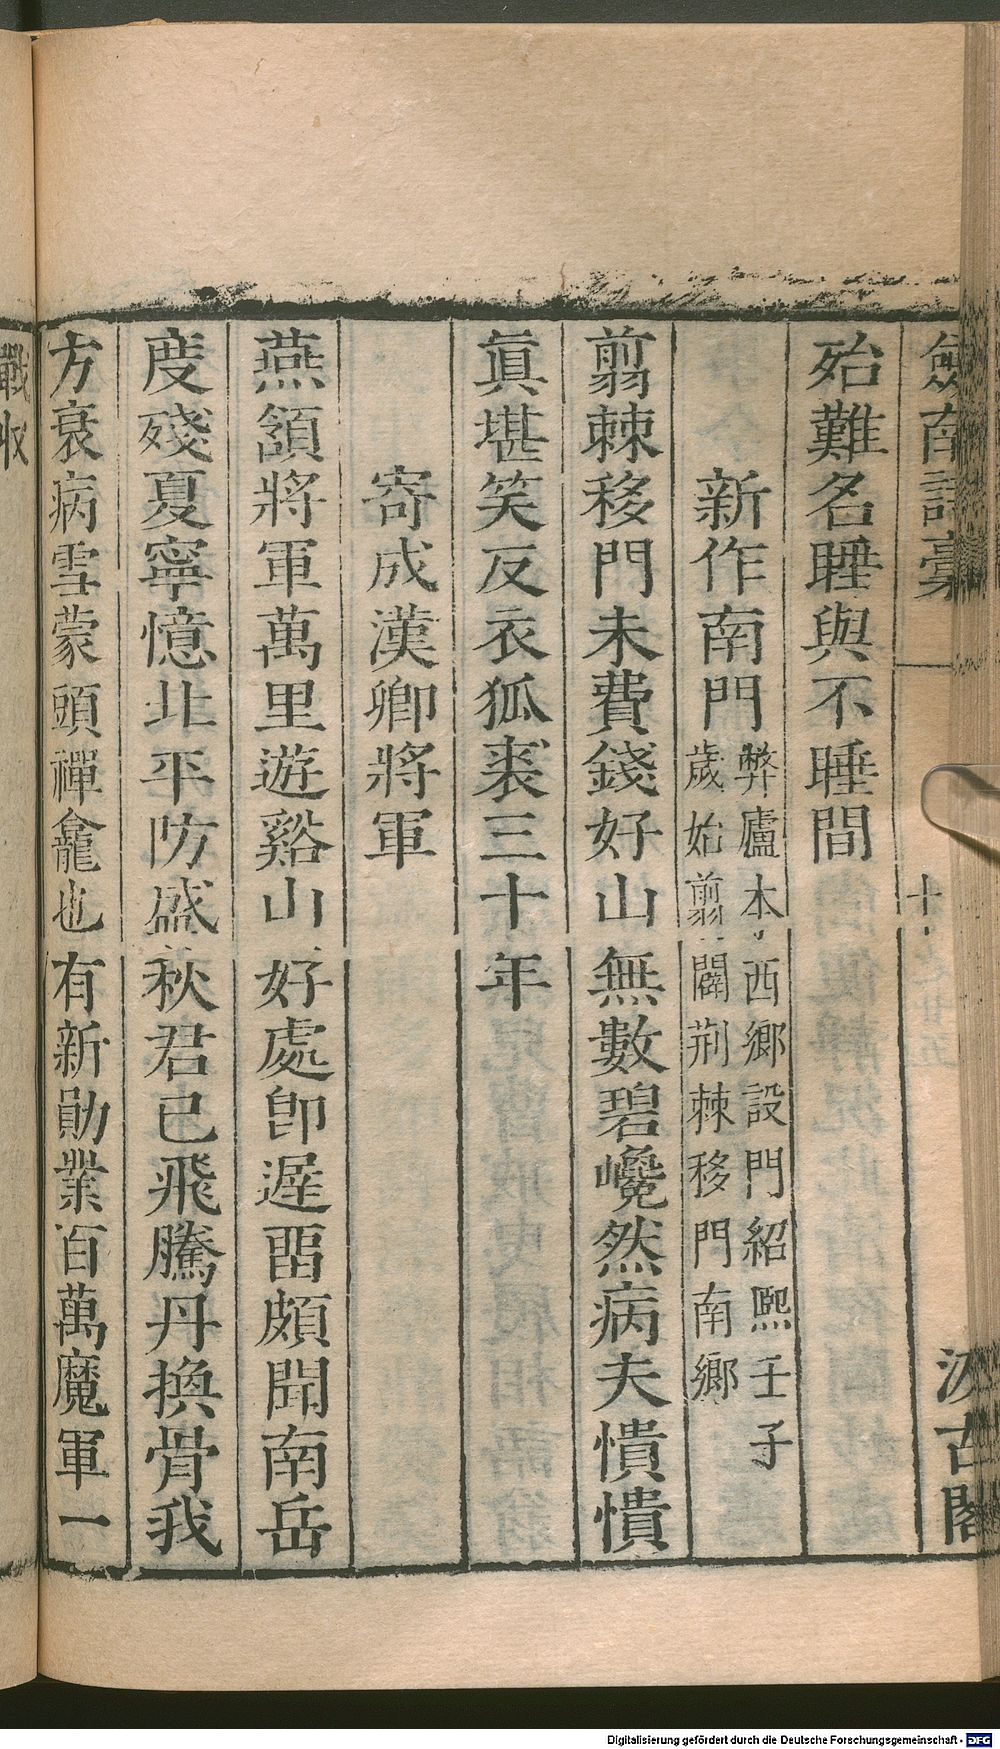 劍南詩藁
十
汲古閣
殆難名睡與不睡間
新作南門
弊廬本西鄉設門紹熙壬子
歲始翦闢荆棘移門南鄉
翦棘移門未費錢好山無數碧巉然病夫憒憒
眞堪笑反衣狐裘三十年
寄成漢卿將軍
燕頷將軍萬里遊谿山好處卽遲畱頗聞南岳
度殘夏寧憶北平防盛秋君已飛騰丹換骨我
方衰病雪蒙頭禪龕也有新勛業百萬魔軍一
戰收
Digitalisierung gefördert durch die Deutsche Forschungsgemeinschaft - DFG